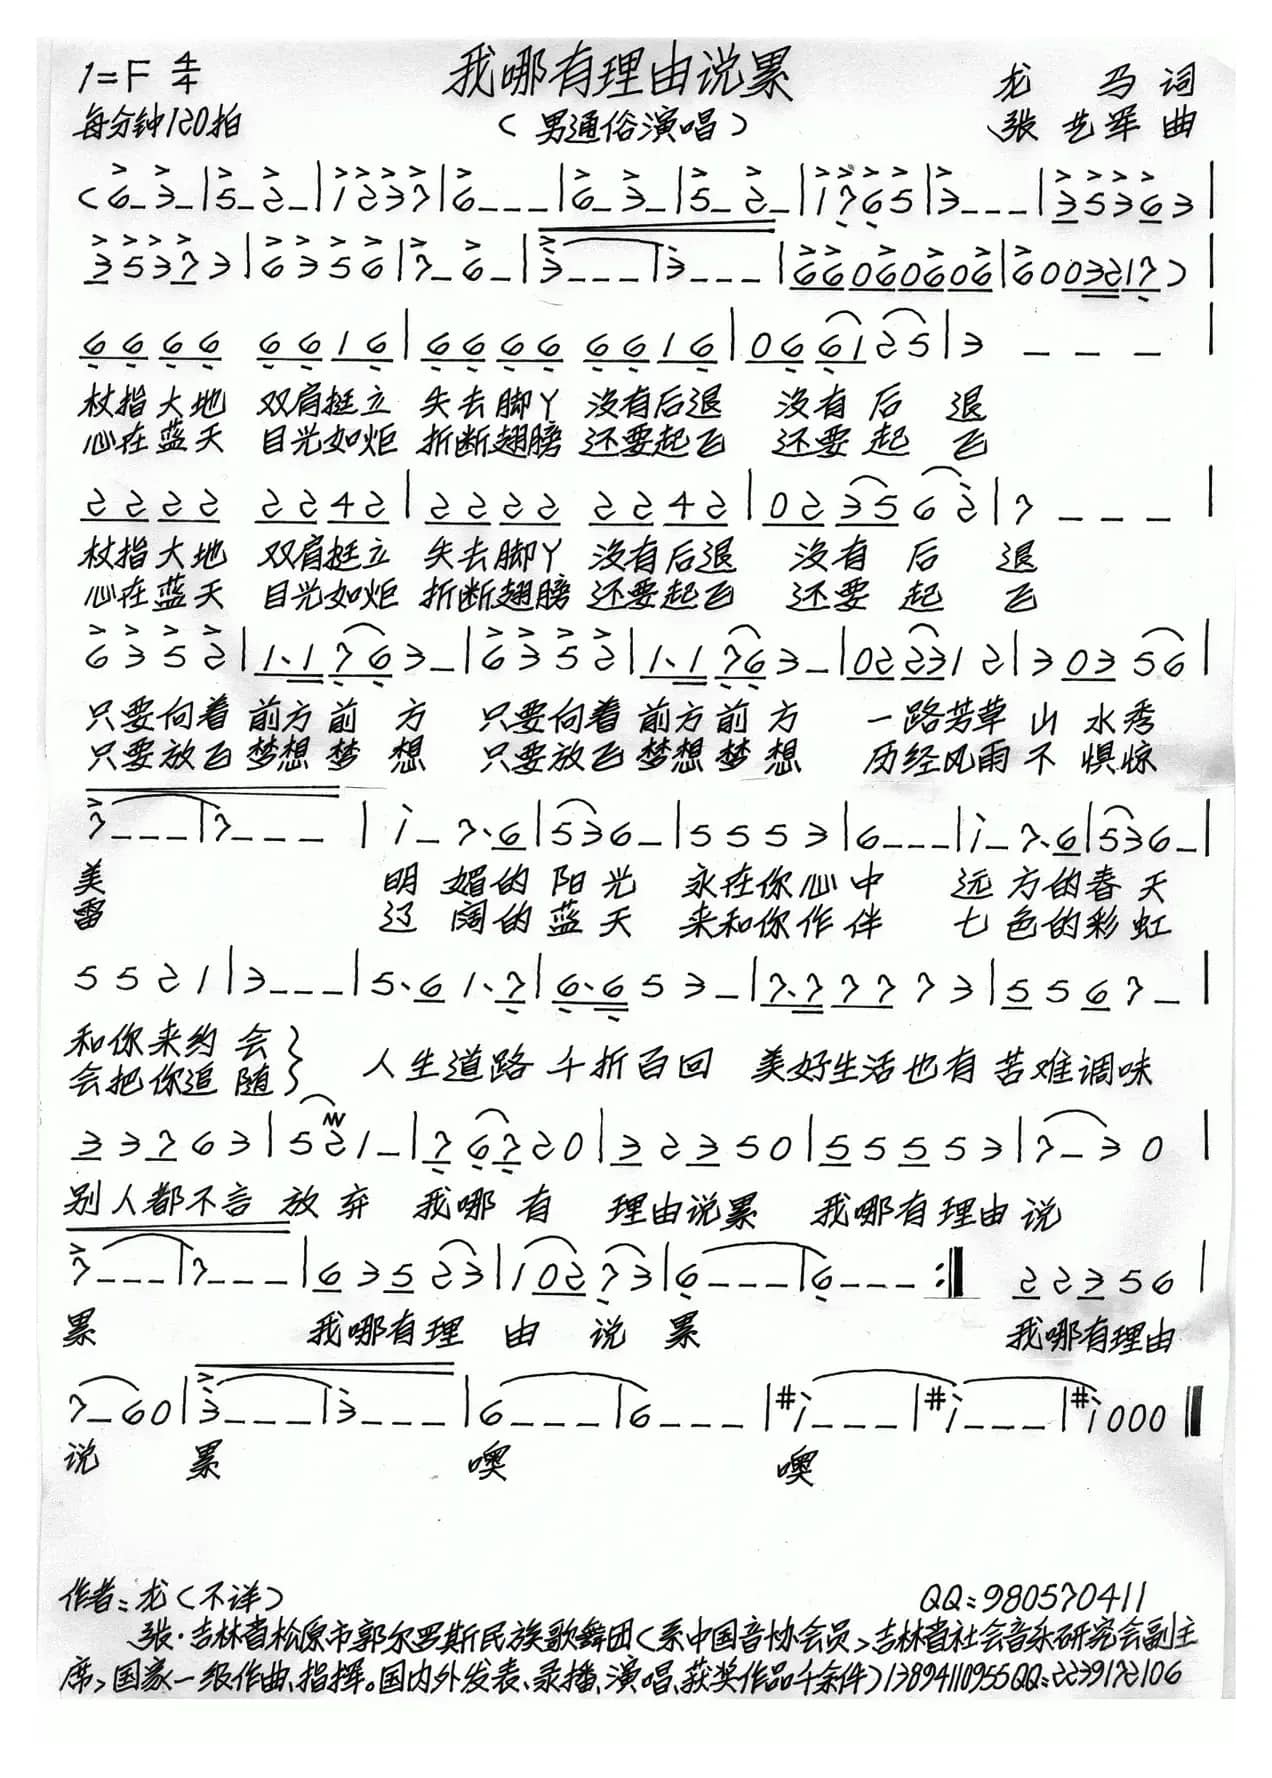 1=F 4/4 我哪有理由说累 龙 马 词
每分钟120拍 (男通俗演唱) 张艺军 曲
(6_3_|5_2_|1237|6___|6_3_|5_2_|1765|3___|35363|
35373|6356|7_6_|3___|3___|66060606|6003217)|
6666 6616|6666 6616|066125|3 _ _ _|
杖指大地 双肩挺立 失去脚丫 没有后退 没有后 退
心在蓝天 目光如炬 折断翅膀 还要起飞 还要起 飞
2222 2242|2222 2242|023562|7 _ _ _|
杖指大地 双肩挺立 失去脚丫 没有后退 没有 后 退
心在蓝天 目光如炬 折断翅膀 还要起飞 还要 起 飞
6352|1·1763_|6352|1·1763_|022312|30356|
只要向着 前方前 方 只要向着 前方前 方 一路芳草 山 水秀
只要放飞 梦想梦 想 只要放飞 梦想梦 想 历经风雨 不 惧惊
7___|7___|1_7·6|536_|5553|6___|1_7·6|536_|
美 明 媚的 阳光 永在你心中 远 方的春天
雷 辽 阔的 蓝天 来和你作伴 七 色的彩虹
5521|3___|5·61·7|6·653_|7·77773|5567_|
和你来约 会} 人生道路 千折百回 美好生活也有 苦难调味
会把你追 随}
33763|521_|76720|32350|55553|7_30|
别人都不言 放弃 我哪 有 理由说累 我哪有理由 说
7___|7___|63523|10273|6___|6___:‖ 22356|
累 我哪有理 由 说 累 我哪有理由
7_60|3___|3___|6___|6___|#1___|#1___|#1000‖
说 累 噢 噢
作者:龙(不详) QQ:980570411
张·吉林省松原市郭尔罗斯民族歌舞团(系中国音协会员、吉林省社会音乐研究会副主
席、国家一级作曲、指挥。国内外发表、录播、演唱、获奖作品千余件)13894110955QQ:2239172106